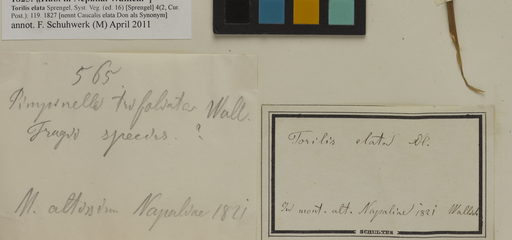 Torilis elata Sprengel. Syst. Veg. (ed. 16) [Sprengel] 4(2, Cur.
Post.): 119. 1827 [nont Caucalis elata Don als Synonym]
annot. F. Schuhwerk (M) April 2011
565
Pimpinella trifoliata Wall.
species. ?
M. altissim Napaliae 1821
Torilis elata
In mont. alt. Napaliae 1821 Wallich
SCHULTES